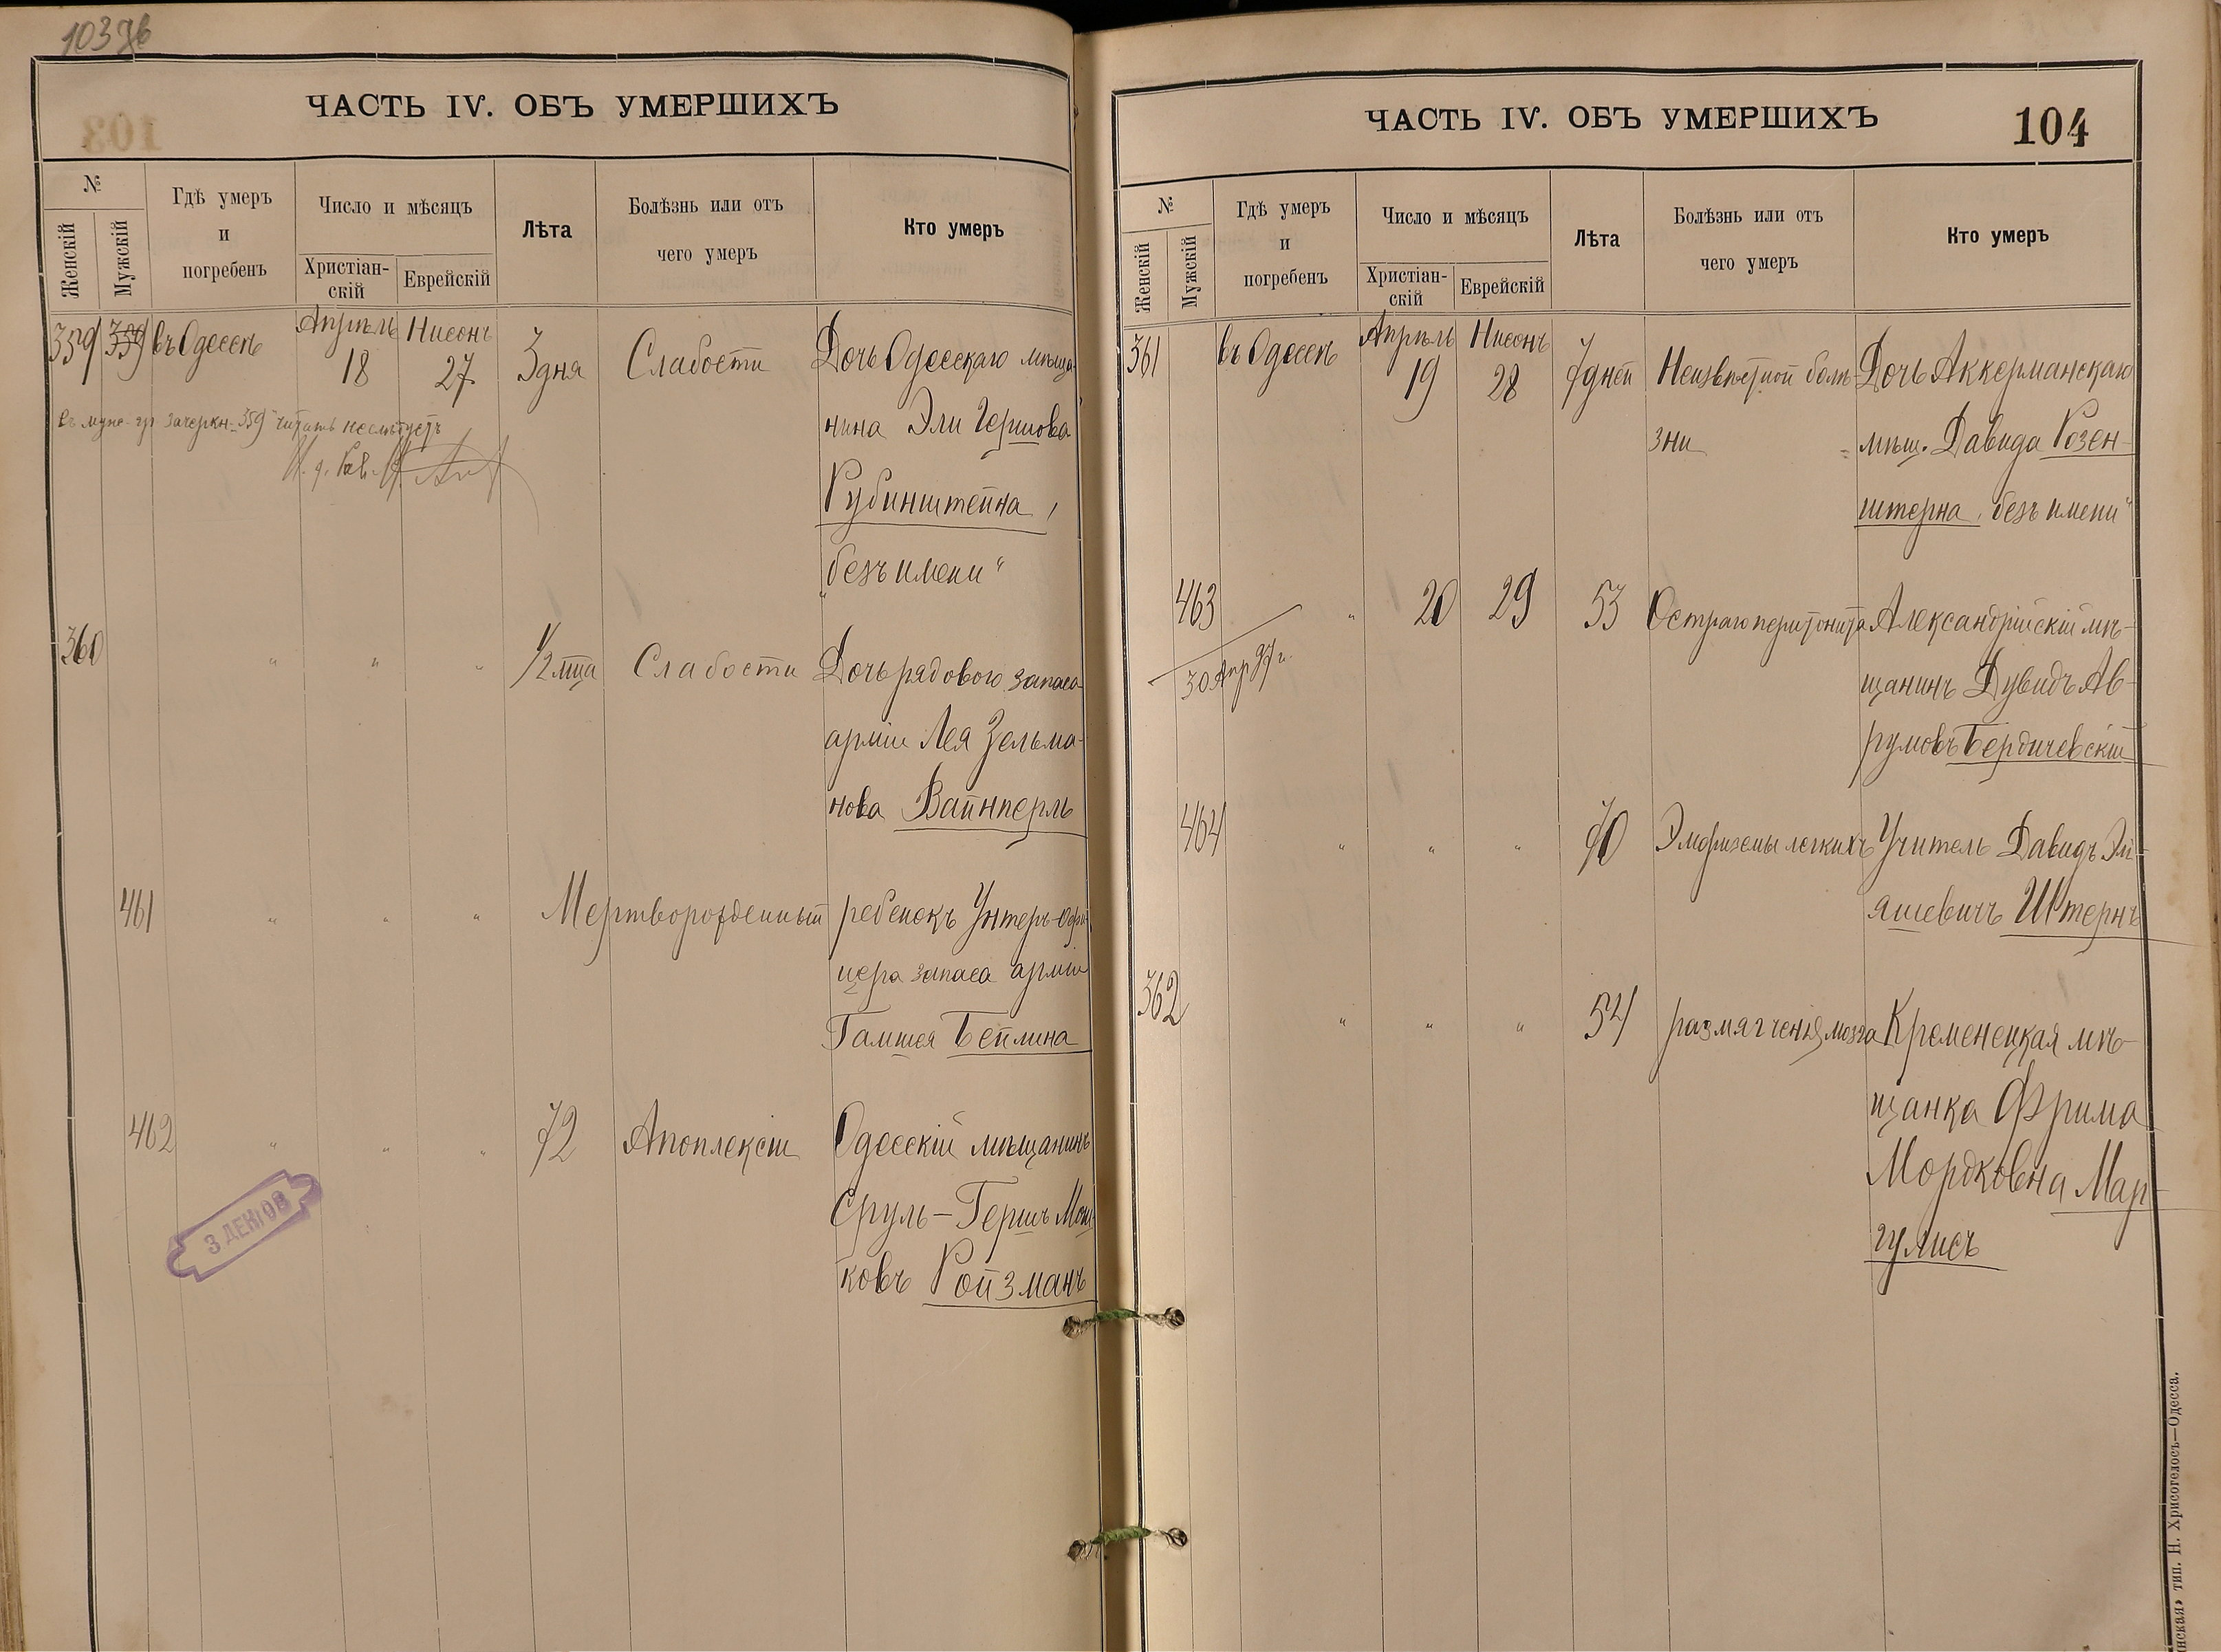 103 об
ЧАСТЬ IV. ОБЪ УМЕРШИХЪ
№
Женскій
Мужскій
Гдѣ умеръ
и
погребенъ
Число и мѣсяцъ
Христіан-
скій
Еврейскій
Лѣта
Болѣзнь или отъ
чего умеръ
Кто умеръ
359 359 въ Одессѣ Апрѣль 18 Нисонъ 27 3 дня Слабости Дочь Одесскаго мѣща-
нина Эли Гершова
Рубинштейна,
„безъ имени“
въ муж. гр. зачеркн. 359 читать не слѣдуетъ
360 " " " 1/2 мца Слабости Дочь рядового запаса
арміи Лея Зельма-
нова Вайнперль
461 " " " Мертворожденный ребенокъ Унтеръ-офи-
цера запаса арміи
Гамшея Бейлина
462 " " " 72 Апоплексіи Одесскій мѣщанинъ
Сруль-Гершъ Мош-
ковъ Ройзманъ
3 ДЕК
ЧАСТЬ IV. ОБЪ УМЕРШИХЪ
104
№
Женскій
Мужскій
Гдѣ умеръ
и
погребенъ
Число и мѣсяцъ
Христіан-
скій
Еврейскій
Лѣта
Болѣзнь или отъ
чего умеръ
Кто умеръ
361 въ Одессѣ Апрѣль 19 Нисонъ 28 7 дней Неизвѣстной болѣ- Дочь Аккерманскаго
зни мѣщ. Давида Розен-
штерна „безъ имени“
463 " 20 29 53 Остраго перитонита Александрійскій мѣ-
30 Апр 97 г.
щанинъ Дувидъ Ав-
румовъ Бердичевскій
464 " " " 70 Эмфиземы легкихъ Учитель Давидъ Эл-
яшевичъ Штернъ
362 " " " 54 размягченія мозга Кременецкая мѣ-
щанка Фрима
Мордковна Мар-
гулисъ
тип. Н. Хрисогелосъ—Одесса.